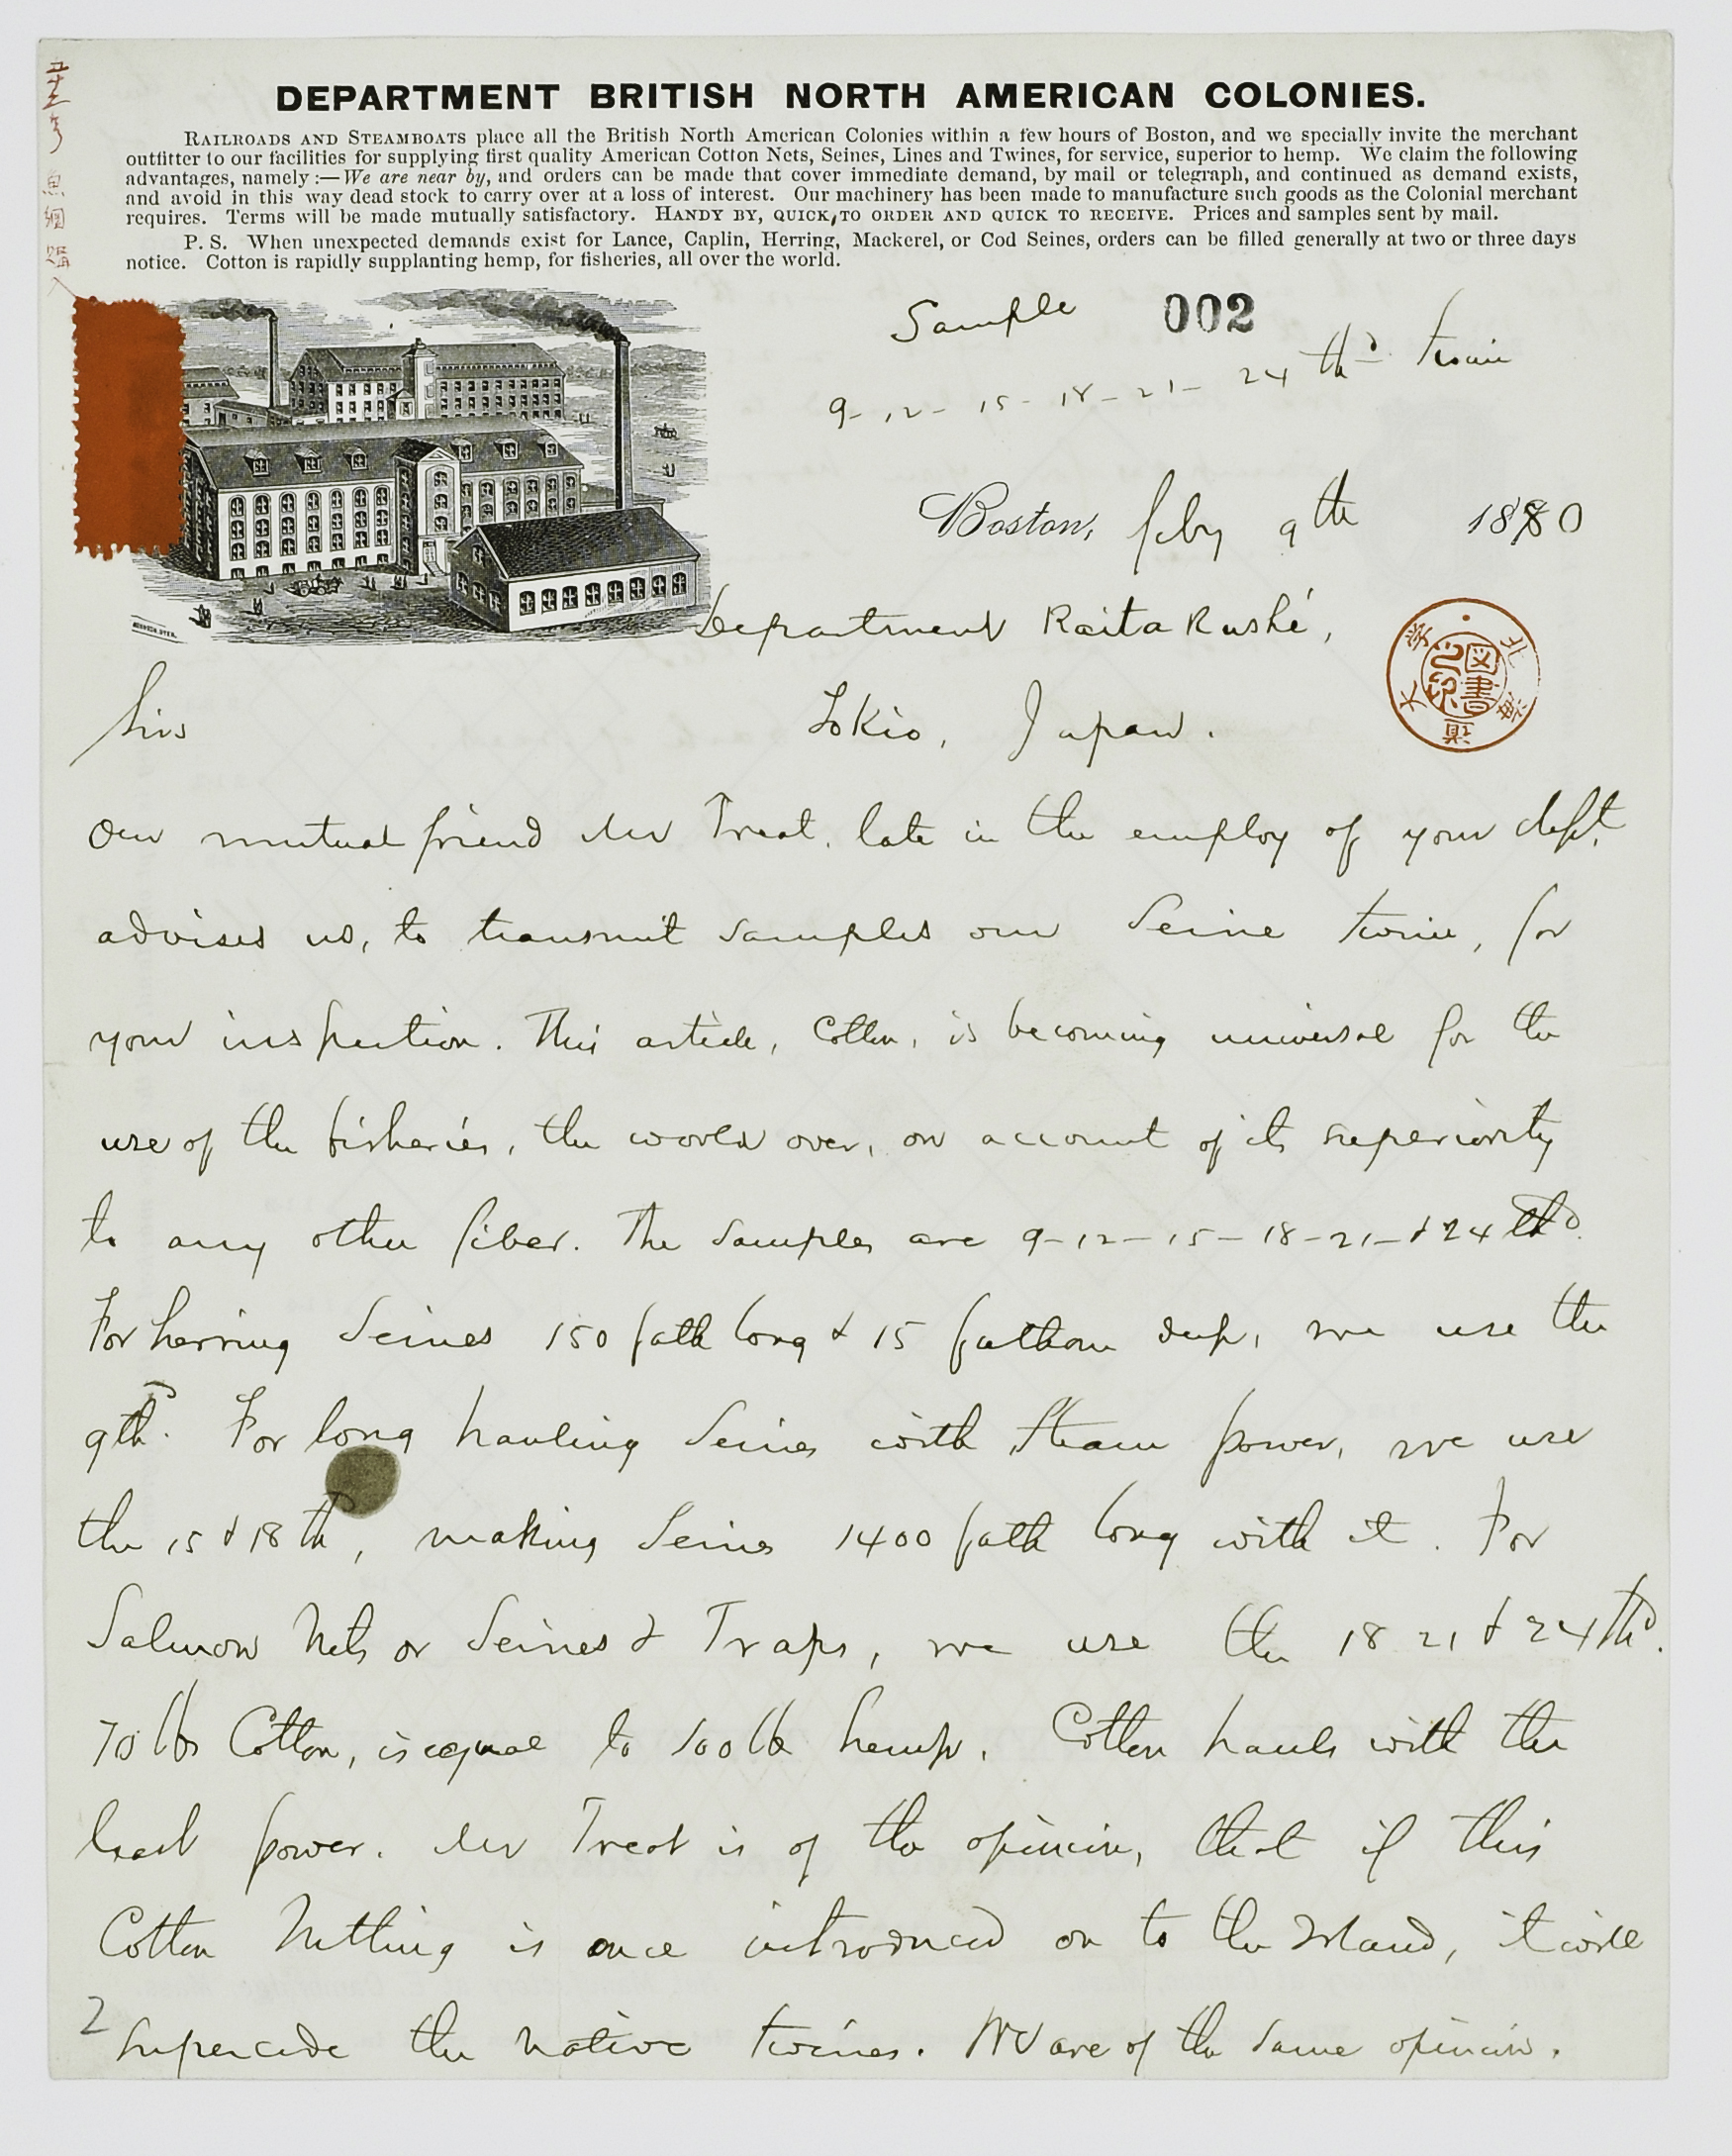 DEPARTMENT BRITISH NORTH AMERICAN COLONIES.
RAILROADS AND STEAMBOATS place all the British North American Colonies within a few hours of Boston, and we specially invite the merchant
outfitter to our facilities for supplying first quality American Cotton Nets, Seines, Lines and Twines, for service, superior to hemp. We claim the following
advantages, namely :—We are near by, and orders can be made that cover immediate demand, by mail or telegraph, and continued as demand exists,
and avoid in this way dead stock to carry over at a loss of interest. Our machinery has been made to manufacture such goods as the Colonial merchant
requires. Terms will be made mutually satisfactory. HANDY BY, QUICK TO ORDER AND QUICK TO RECEIVE. Prices and samples sent by mail.
P. S. When unexpected demands exist for Lance, Caplin, Herring, Mackerel, or Cod Seines, orders can be filled generally at two or three days
notice. Cotton is rapidly supplanting hemp, for fisheries, all over the world.
Sample 002
9-12-15-18-21-24 thd twin
Boston, feby 9th 1880
Department Kaita Kushé,
Sirs
Tokio, Japan.
Our mutual friend Mr Treat, late in the employ of your dept.
advises us, to transmit samples our Seine twine, for
your inspection. This article, Cotton, is becoming universal for the
use of the fisheries, the world over, on account of its superiority
to any other fiber. The samples are 9-12-15-18-21-& 24 thd.
For herring Seines 150 fath long & 15 fathom deep, we use the
9thd. For long hauling Seines with Steam power, we use
the 15 & 18 th, making Seines 1400 fath long with it. For
Salmon Nets or Seines & Traps, we use the 18 21 & 24 thd.
70 lbs Cotton, is equal to 100 lb hemp. Cotton hauls with the
least power. Mr Treat is of the opinion, that if this
Cotton Netting is once introduced on to the Island, it will
2 supercede the native twines. We are of the same opinion.
北海道
大学
図書
之印